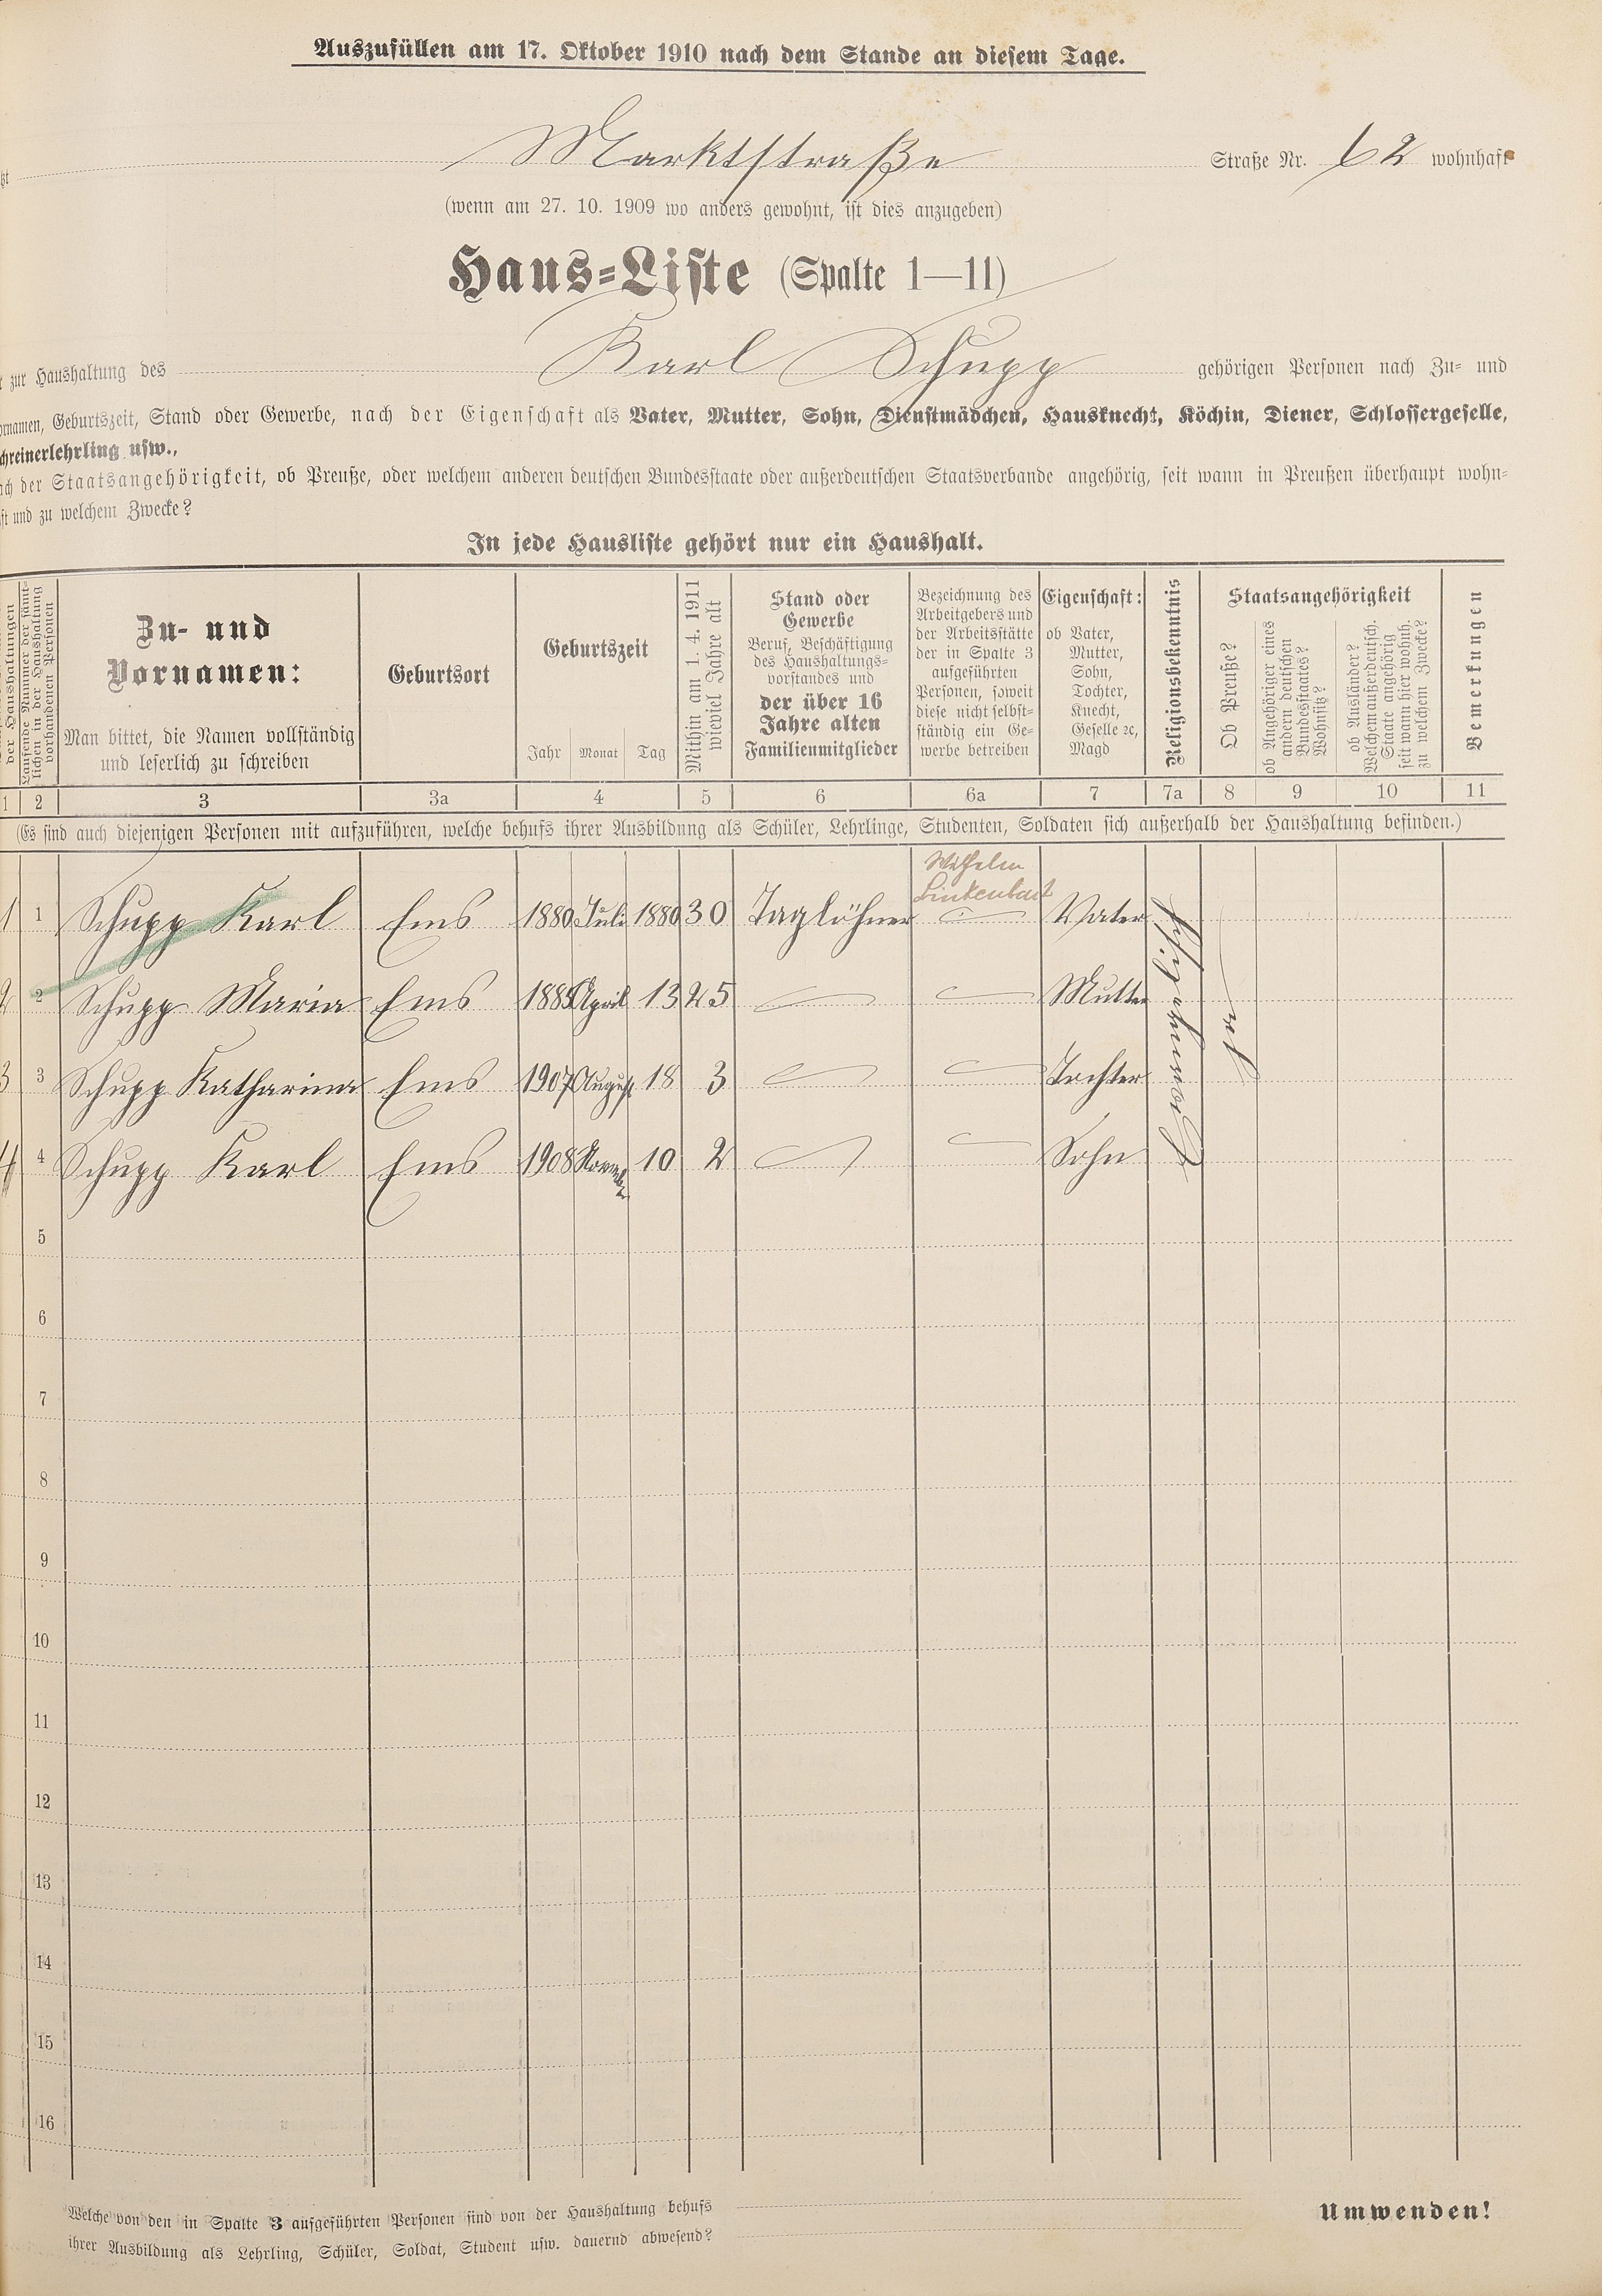 Auszufüllen am 17. Oktober 1910 nach dem Stande an diesem Tage.
Marktstraße Straße Nr. 62 wohnhaft
(wenn am 27. 10. 1909 wo anders gewohnt, ist dies anzugeben)
Haus-Liste (Spalte 1—11)
zur Haushaltung des Karl Schupp gehörigen Personen nach Zu- und
Geburtszeit, Stand oder Gewerbe, nach der Eigenschaft als Vater, Mutter, Sohn, Dienstmädchen, Hausknecht, Köchin, Diener, Schlossergeselle,
usw.,
der Staatsangehörigkeit, ob Preuße, oder welchem anderen deutschen Bundesstaate oder außerdeutschen Staatsverbande angehörig, seit wann in Preußen überhaupt wohn-
und zu welchem Zwecke?
In jede Hausliste gehört nur ein Haushalt.
der Haushaltungen
Laufende Nummer der sämt-
lichen in der Haushaltung
vorhandenen Personen
Zu- und
Vornamen:
Man bittet, die Namen vollständig
und leserlich zu schreiben
Geburtsort
Geburtszeit
Jahr Monat Tag
Mithin am 1. 4. 1911
wieviel Jahre alt
Stand oder
Gewerbe
Beruf, Beschäftigung
des Haushaltungs-
vorstandes und
der über 16
Jahre alten
Familienmitglieder
Bezeichnung des
Arbeitgebers und
der Arbeitsstätte
der in Spalte 3
aufgeführten
Personen, soweit
diese nicht selbst-
ständig ein Ge-
werbe betreiben
Eigenschaft:
ob Vater,
Mutter,
Sohn,
Tochter,
Knecht,
Geselle ꝛc,
Magd
Religionsbekenntnis
Staatsangehörigkeit
Ob Preuße?
ob Angehöriger eines
andern deutschen
Bundesstaates?
Wohnsitz?
ob Ausländer?
Welchem außerdeutsch.
Staate angehörig
seit wann hier wohnh.
zu welchem Zwecke?
Bemerkungen
1 2 3 3a 4 5 6 6a 7 7a 8 9 10 11
(Es sind auch diejenigen Personen mit aufzuführen, welche behufs ihrer Ausbildung als Schüler, Lehrlinge, Studenten, Soldaten sich außerhalb der Haushaltung befinden.)
Wilhelm
Linkenbach
1 1 Schupp Karl Ems 1880 Juli 1880 30 Taglöhner Vater
2 2 Schupp Maria Ems 1885 April 13 25 Mutter
3 3 Schupp Katharina Ems 1907 August 18 3 Tochter
4 4 Schupp Karl Ems 1908 10 2 Sohn
5
6
7
8
9
10
11
12
13
14
15
16
Welche von den in Spalte 3 aufgeführten Personen sind von der Haushaltung behufs
ihrer Ausbildung als Lehrling, Schüler, Soldat, Student usw. dauernd abwesend?
Umwenden!